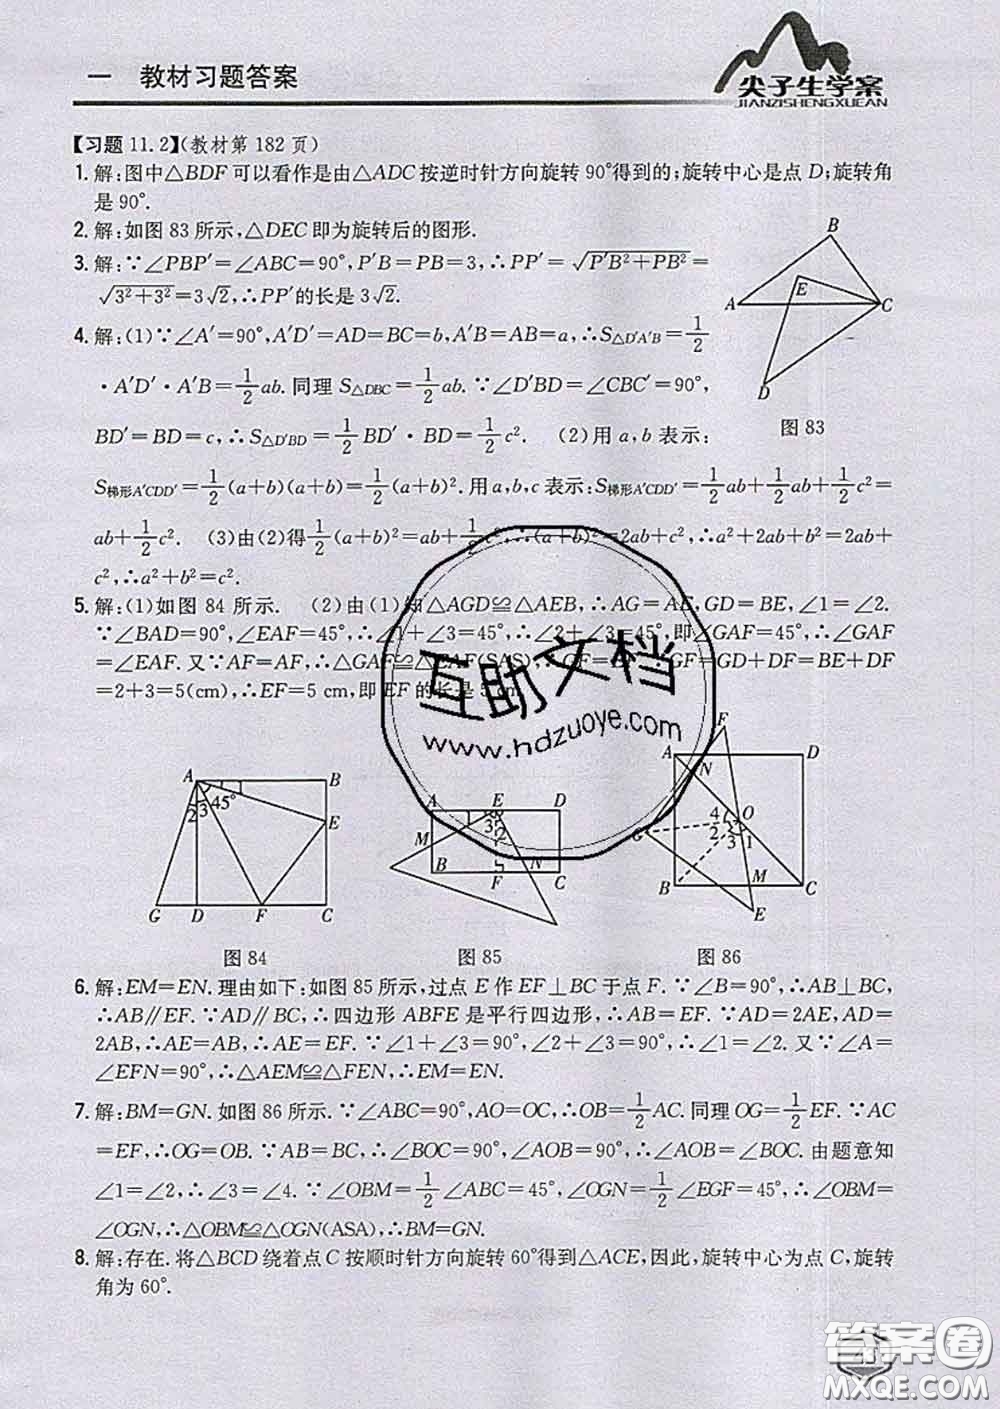 一 教材习题答案
尖子生学案
JIANZISHENGXUEAN
【习题 11.2】(教材第 182 页)
1. 解:图中△BDF 可以看作是由△ADC 按逆时针方向旋转 90°得到的;旋转中心是点 D;旋转角
是 90°.
2. 解:如图 83 所示,△DEC 即为旋转后的图形.
3. 解:∵∠PBP′=∠ABC=90°,P′B=PB=3,∴PP′=√(P′B²+PB²)=
√(3²+3²)=3√2,∴PP′的长是 3√2.
4. 解:(1)∵∠A′=90°,A′D′=AD=BC=b,A′B=AB=a,∴S△D′A′B=1/2
·A′D′·A′B=1/2ab.同理 S△DBC=1/2ab.∵∠D′BD=∠CBC′=90°,
BD′=BD=c,∴S△D′BD=1/2BD′·BD=1/2c². (2)用 a,b 表示:
S梯形A′CDD′=1/2(a+b)(a+b)=1/2(a+b)².用 a,b,c 表示:S梯形A′CDD′=1/2ab+1/2ab+1/2c²=
ab+1/2c². (3)由(2)得1/2(a+b)²=ab+1/2c²,∴(a+b)²=2ab+c²,∴a²+2ab+b²=2ab+
c²,∴a²+b²=c².
B
E
A
C
D
图 83
5. 解:(1)如图 84 所示. (2)由(1)知△AGD≌△AEB,∴AG=AE,GD=BE,∠1=∠2.
∵∠BAD=90°,∠EAF=45°,∴∠1+∠3=45°,∴∠2+∠3=45°,即∠GAF=45°,∴∠GAF
=∠EAF.又∵AF=AF,∴△GAF≌△EAF(SAS),∴GF=EF.∵GF=GD+DF=BE+DF
=2+3=5(cm),∴EF=5 cm,即 EF 的长是 5 cm.
互助文档
www.hdzuoye.com
A
B
2
3
45°
E
G
D
F
C
图 84
A
E
D
M
3
2
B
F
N
C
图 85
F
A
N
D
4
O
G
2
3
1
B
M
C
E
图 86
6. 解:EM=EN.理由如下:如图 85 所示,过点 E 作 EF⊥BC 于点 F.∵∠B=90°,∴AB⊥BC,
∴AB∥EF.∵AD∥BC,∴四边形 ABFE 是平行四边形,∴AB=EF.∵AD=2AE,AD=
2AB,∴AE=AB,∴AE=EF.∵∠1+∠3=90°,∠2+∠3=90°,∴∠1=∠2.又∵∠A=
∠EFN=90°,∴△AEM≌△FEN,∴EM=EN.
7. 解:BM=GN.如图 86 所示.∵∠ABC=90°,AO=OC,∴OB=1/2AC.同理 OG=1/2EF.∵AC
=EF,∴OG=OB.∵AB=BC,∴∠BOC=90°,∠AOB=90°,∴∠AOB=∠BOC.由题意知
∠1=∠2,∴∠3=∠4.∵∠OBM=1/2∠ABC=45°,∠OGN=1/2∠EGF=45°,∴∠OBM=
∠OGN,∴△OBM≌△OGN(ASA),∴BM=GN.
8. 解:存在.将△BCD 绕着点 C 按顺时针方向旋转 60°得到△ACE,因此,旋转中心为点 C,旋转
角为 60°.
答案圈
MXQE.COM